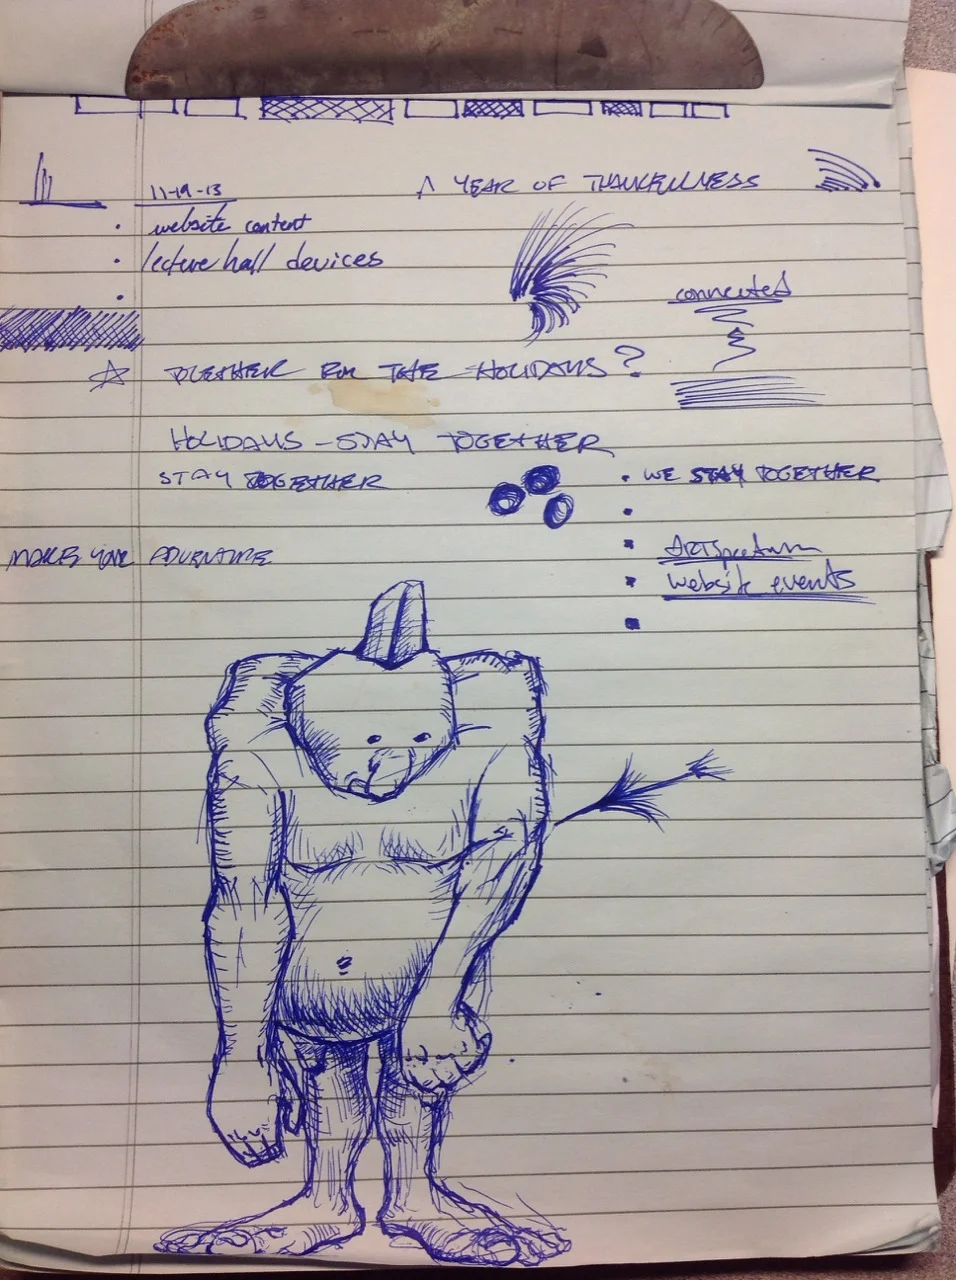 11-19-13
A YEAR OF THANKFULLNESS
• website content
• lecture hall devices
•
connected
☆ TOGETHER FOR THE HOLIDAYS?
HOLIDAYS - STAY TOGETHER
STAY TOGETHER
• WE STAY TOGETHER
•
MAKE YOUR ADVENTURE
• ARTSpectrum
• website events
•